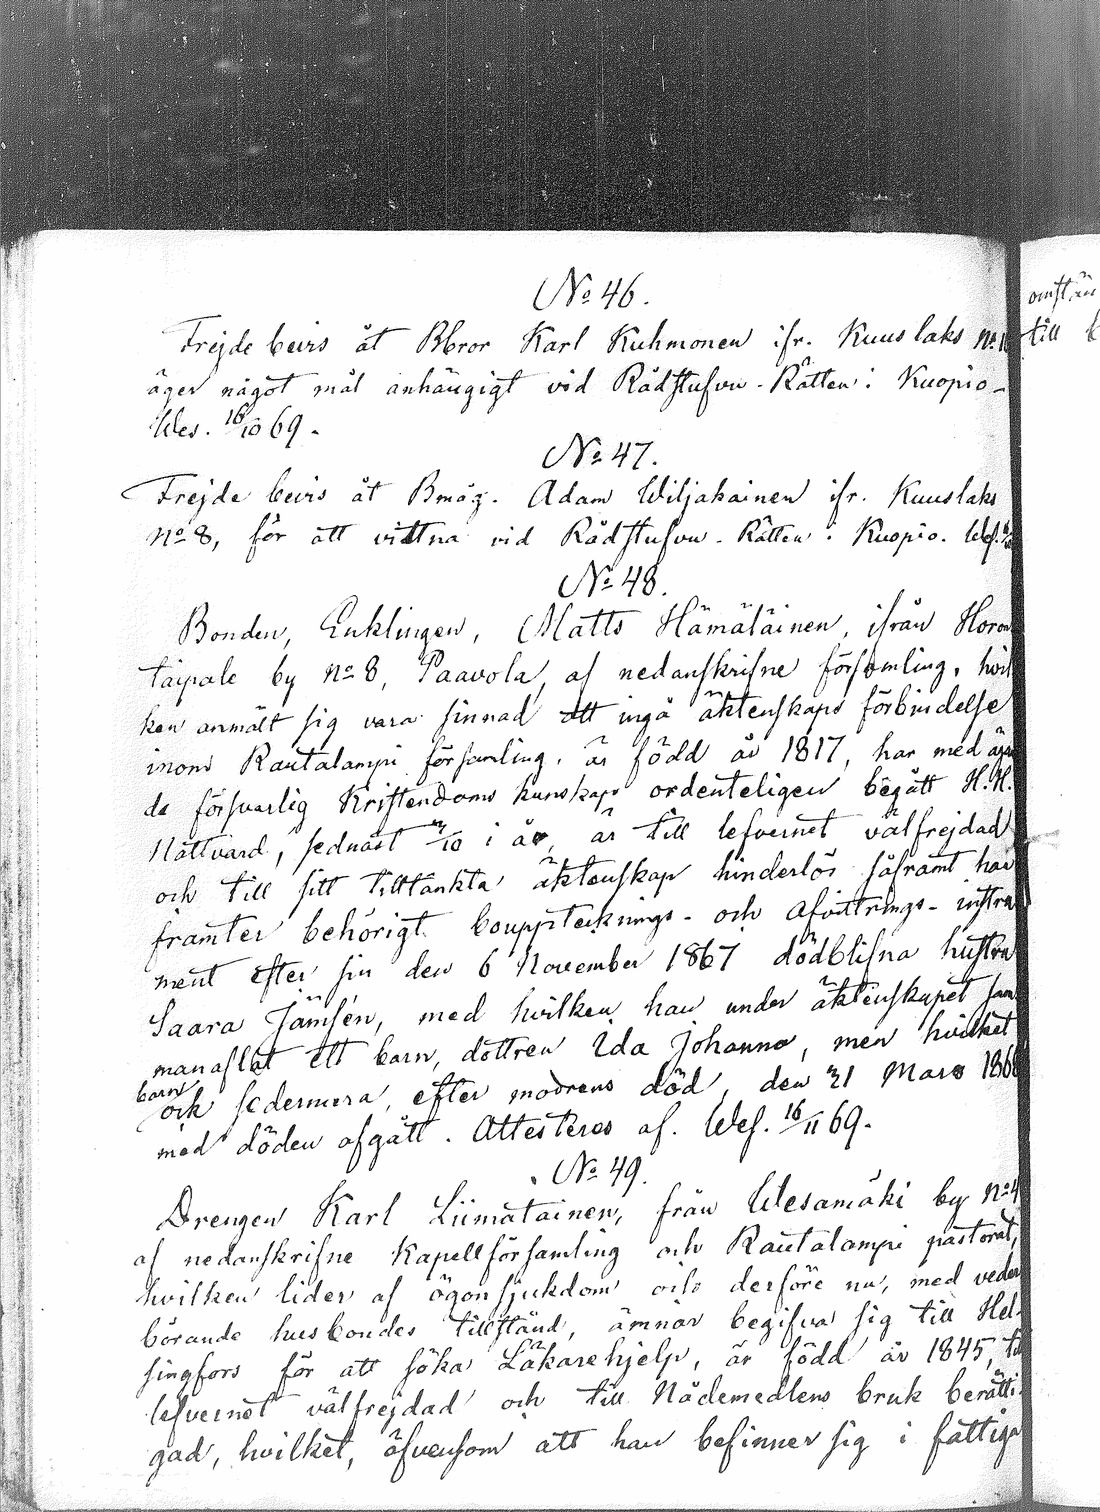 No 46.
Frejdebevis åt Bbror Karl Kuhmonen ifr. Kuuslaks No 1
äger något mål anhängigt vid Rådstufvu-Rätten i Kuopio-
Wes. 16/10 69.
No 47.
Frejdebevis åt Bmåg. Adam Wiljakainen ifr. Kuuslaks
No 8, för att vittna vid Rådstufvu-Rätten i Kuopio. Wes.
No 48.
Bonden, Enklingen, Matts Hämäläinen, ifrån Horon
taipale by No 8, Paavola, af nedanskrifne församling, hvil
ken anmält sig vara sinnad att ingå äktenskaps förbindelse
inom Rautalampi församling, är född år 1817, har med ägan
de försvarlig Kristendoms kunskap ordenteligen begått H.H.
Nattvard, sednast /10 i år, är till lefvernet välfrejdad
och till sitt tilltänkta äktenskap hinderlös såframt han
framter behörigt bouppteknings- och afvittrings-instru
ment efter sin den 6 November 1867 dödblifna hustru
Saara Jämsén, med hvilken han under äktenskapet sam
manaflat ett barn, dottren Ida Johanna, men hvilket
barn
ock sedermera, efter modrens död, den 21 Mars 186
med döden afgått. Attesteras af. Wes. 16/11 69.
No 49.
Drengen Karl Liimatainen, från Wesamäki by No 4
af nedanskrifne Kapellförsamling och Rautalampi pastorat,
hvilken lider af ögonsjukdom och derföre nu, med veder
börande husbondes tillstånd, ämnar begifva sig till Hel-
singfors för att söka Läkarehjelp, är född år 1845, till
lefvernet välfrejdad och till Nådemedlens bruk berätti-
gad, hvilket, äfvensom att han befinner sig i fattiga
omstän
till